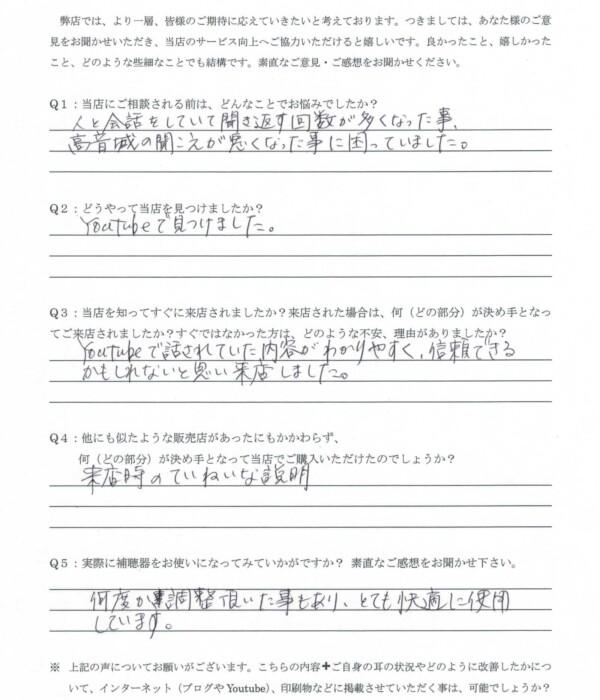 弊店では、より一層、皆様のご期待に応えていきたいと考えております。つきましては、あなた様のご意
見をお聞かせいただき、当店のサービス向上へご協力いただけると嬉しいです。良かったこと、嬉しかった
こと、どのような些細なことでも結構です。素直なご意見・ご感想をお聞かせください。
Q1：当店にご相談される前は、どんなことでお悩みでしたか？
人と会話をしていて聞き返す回数が多くなった事、
高音域の聞こえが悪くなった事に困っていました。
Q2：どうやって当店を見つけましたか？
Youtubeで見つけました。
Q3：当店を知ってすぐに来店されましたか？来店された場合は、何（どの部分）が決め手となっ
てご来店されましたか？すぐではなかった方は、どのような不安、理由がありましたか？
Youtubeで話されていた内容がわかりやすく、信頼できる
かもしれないと思い来店しました。
Q4：他にも似たような販売店があったにもかかわらず、
何（どの部分）が決め手となって当店でご購入いただけたのでしょうか？
来店時のていねいな説明
Q5：実際に補聴器をお使いになってみていかがですか？ 素直なご感想をお聞かせ下さい。
何度か調整頂いた事もあり、とても快適に使用
しています。
※ 上記の声についてお願いがございます。こちらの内容＋ご自身の耳の状況やどのように改善したかにつ
いて、インターネット（ブログやYoutube）、印刷物などに掲載させていただく事は、可能でしょうか？